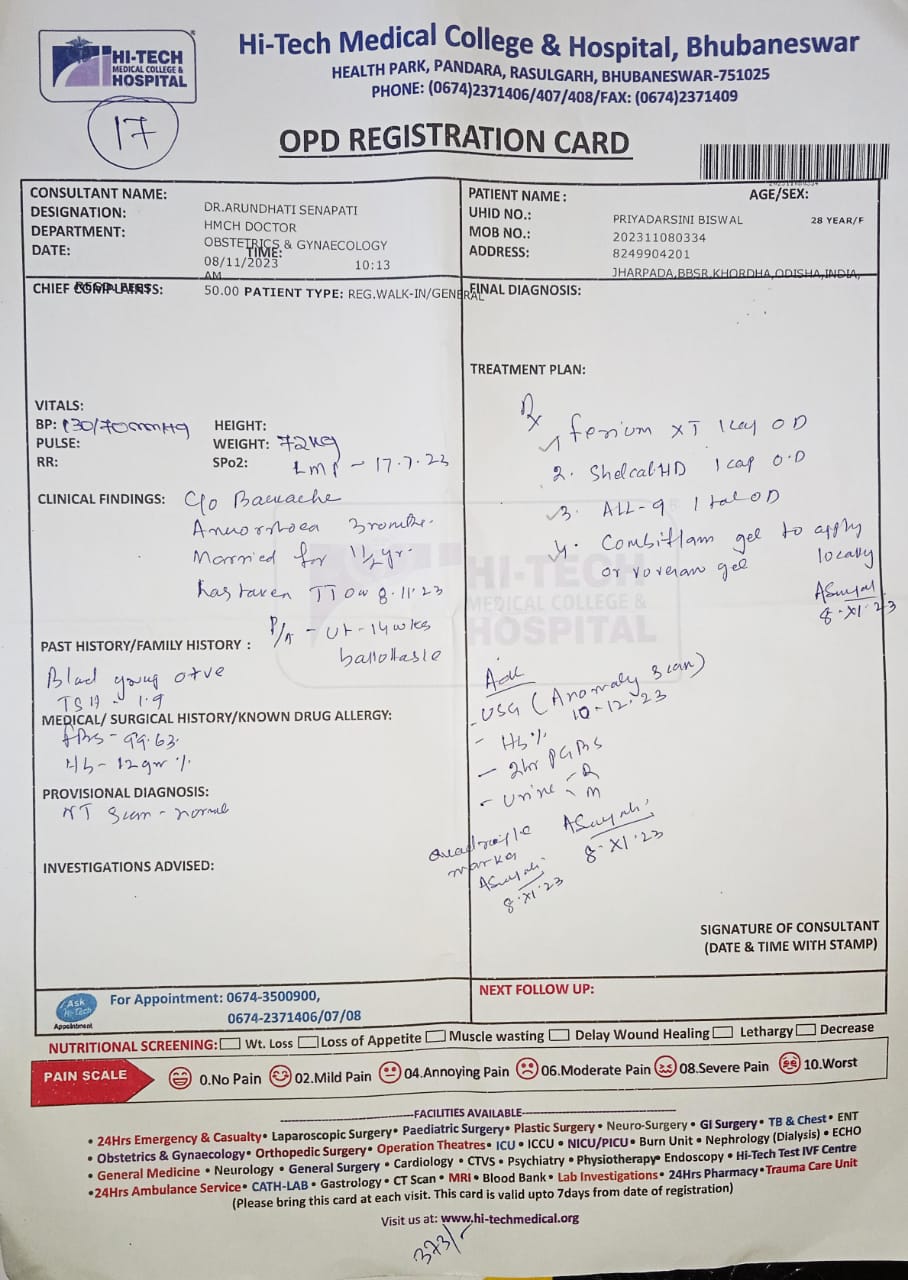 HI-TECH
MEDICAL COLLEGE &
HOSPITAL
Hi-Tech Medical College & Hospital, Bhubaneswar
HEALTH PARK, PANDARA, RASULGARH, BHUBANESWAR-751025
PHONE: (0674)2371406/407/408/FAX: (0674)2371409
17
OPD REGISTRATION CARD
CONSULTANT NAME: DR.ARUNDHATI SENAPATI
DESIGNATION: HMCH DOCTOR
DEPARTMENT: OBSTETRICS & GYNAECOLOGY
DATE: 08/11/2023 TIME: 10:13 AM
PATIENT NAME : PRIYADARSINI BISWAL AGE/SEX: 28 YEAR/F
UHID NO.: 202311080334
MOB NO.: 8249904201
ADDRESS: JHARPADA,BBSR,KHORDHA,ODISHA,INDIA,
CHIEF COMPLAINTS: 50.00 PATIENT TYPE: REG.WALK-IN/GENERAL
VITALS:
BP: 130/70mmHg HEIGHT:
PULSE: WEIGHT: 72kg
RR: SPo2:
LMP - 17.7.23
CLINICAL FINDINGS: C/o Bacache
3 months.
Married for 1 1/2 yr.
has taken TT on 8.11.23
P/A - Ut - 14 wks
PAST HISTORY/FAMILY HISTORY :
Blad group o+ve
TSH - 1.9
MEDICAL/ SURGICAL HISTORY/KNOWN DRUG ALLERGY:
FBS - 99.63
Hb - 12gm %
PROVISIONAL DIAGNOSIS:
NT Scan - normal
INVESTIGATIONS ADVISED:
FINAL DIAGNOSIS:
TREATMENT PLAN:
Rx
1 ferium XT 1 cap OD
2. Shelcal HD 1 cap O.D
3. ALL-9 1 tab OD
4. Combiflam gel to apply
locally
or voveran gel
8.XI.23
HI-TECH
MEDICAL COLLEGE &
HOSPITAL
Adv
- USG (Anomaly scan)
10-12.23
- Hb%
- 2hr PGBS
- Urine - R
- M
8.XI.23
Quadruple
marker
8.XI.23
SIGNATURE OF CONSULTANT
(DATE & TIME WITH STAMP)
Ask
Hi-Tech
Appointment
For Appointment: 0674-3500900,
0674-2371406/07/08
NEXT FOLLOW UP:
NUTRITIONAL SCREENING: Wt. Loss Loss of Appetite Muscle wasting Delay Wound Healing Lethargy Decrease
PAIN SCALE 0.No Pain 02.Mild Pain 04.Annoying Pain 06.Moderate Pain 08.Severe Pain 10.Worst
FACILITIES AVAILABLE
• 24Hrs Emergency & Casualty• Laparoscopic Surgery• Paediatric Surgery• Plastic Surgery • Neuro-Surgery• GI Surgery• TB & Chest• ENT
• Obstetrics & Gynaecology• Orthopedic Surgery• Operation Theatres• ICU • ICCU • NICU/PICU• Burn Unit • Nephrology (Dialysis) • ECHO
• General Medicine • Neurology • General Surgery • Cardiology • CTVS • Psychiatry • Physiotherapy• Endoscopy • Hi-Tech Test IVF Centre
•24Hrs Ambulance Service• CATH-LAB • Gastrology • CT Scan • MRI • Blood Bank • Lab Investigations• 24Hrs Pharmacy•Trauma Care Unit
(Please bring this card at each visit. This card is valid upto 7days from date of registration)
Visit us at: www.hi-techmedical.org
373/-